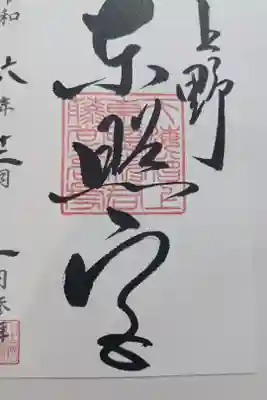 上野
東照宮
令和六年十二月一日参拝